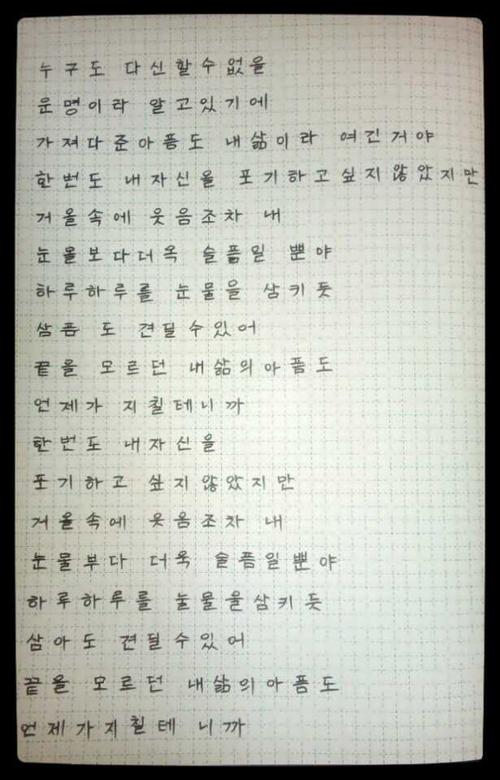 누구도 다신할수없을
운명이라 알고있기에
가져다준아픔도 내삶이라 여긴거야
한번도 내자신을 포기하고싶지않았지만
거울속에 웃음조차 내
눈물보다더욱 슬픔일 뿐야
하루하루를 눈물을 삼키듯
삼픔 도 견딜수있어
끝을 모르던 내삶의아픔도
언제가 지칠테니까
한번도 내자신을
포기하고 싶지않았지만
거울속에 웃음조차 내
눈물부다 더욱 슬픔일뿐야
하루하루를 눌물을삼키듯
삼아도 견딜수있어
끝을 모르던 내삶의아픔도
언제가지칠테 니까